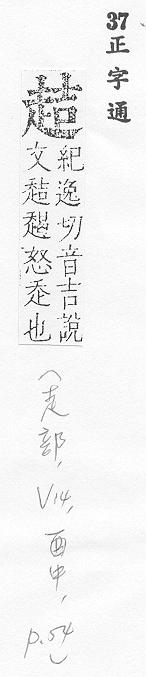 37 正字通
趌
紀逸切音吉說
文趌怒走也
(走部, V14, 酉中, p.54)